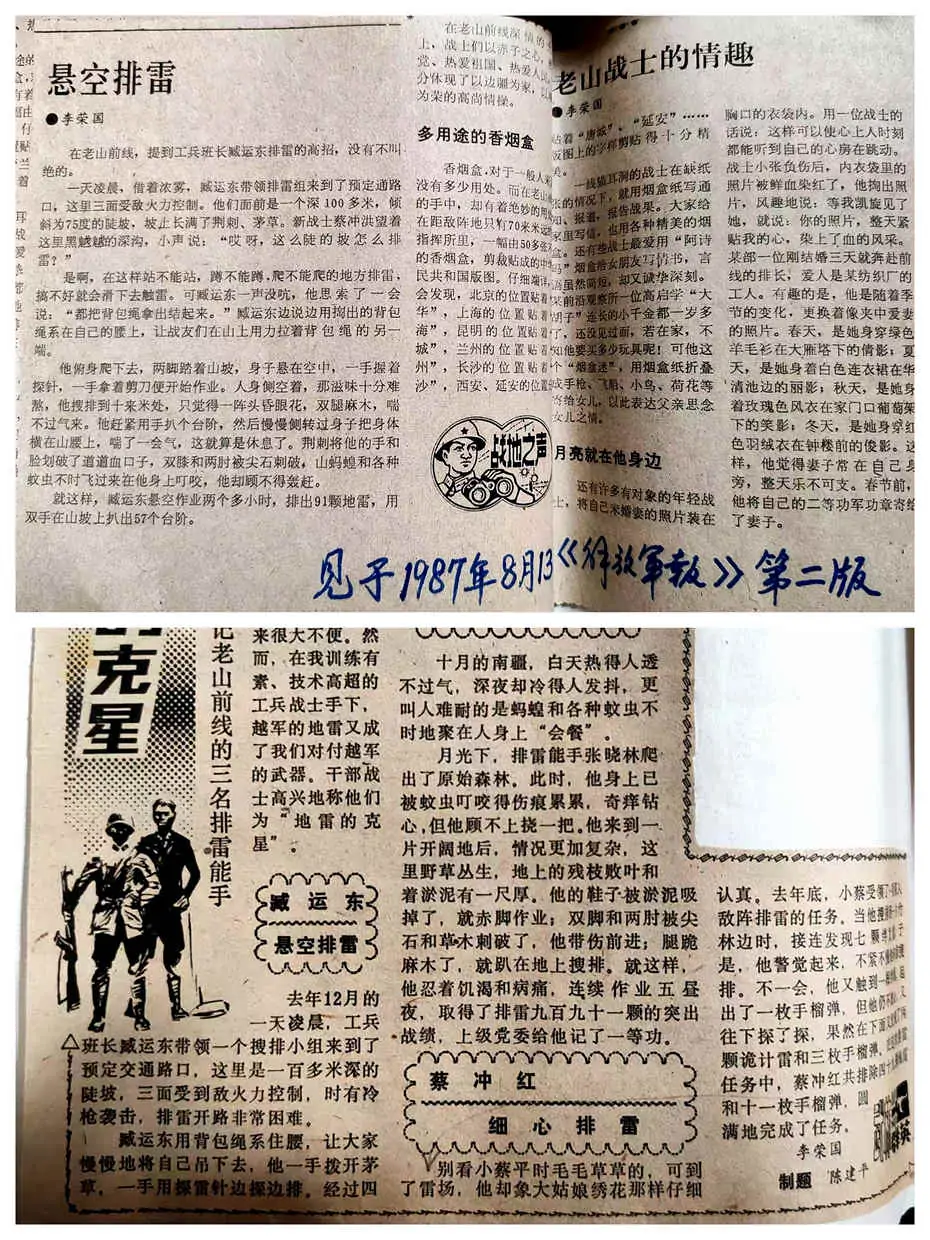 悬空排雷
●李荣国
在老山前线，提到工兵班长臧运东排雷的高招，没有不叫
绝的。
一天凌晨，借着浓雾，臧运东带领排雷组来到了预定通路
口，这里三面受敌火力控制。他们面前是一个深100多米，倾
斜为75度的陡坡，坡止长满了荆刺、茅草。新战士蔡冲洪望着
这里黑魆魆的深沟，小声说：“哎呀，这么陡的坡怎么排
雷？”
是啊，在这样站不能站，蹲不能蹲，爬不能爬的地方排雷，
搞不好就会滑下去触雷。可臧运东一声没吭，他思索了一会
说：“都把背包绳拿出结起来。”臧运东边说边用掏出的背包
绳系在自己的腰上，让战友们在山上用力拉着背包绳的另一
端。
他俯身爬下去，两脚踏着山坡，身子悬在空中，一手握着
探针，一手拿着剪刀便开始作业。人身侧空着，那滋味十分难
熬，他搜排到十来米处，只觉得一阵头昏眼花，双腿麻木，喘
不过气来。他赶紧用手扒个台阶，然后慢慢侧转过身子把身体
横在山腰上，喘了一会气，这就算是休息了。荆刺将他的手和
脸划破了道道血口子，双膝和两肘被尖石刺破，山蚂蝗和各种
蚊虫不时飞过来在他身上叮咬，他却顾不得轰赶。
就这样，臧运东悬空作业两个多小时，排出91颗地雷，用
双手在山坡上扒出57个台阶。
在老山前线深情的
上，战士们以赤子之心，
党、热爱祖国、热爱人民
分体现了以边疆为家，以
为荣的高尚情操。
多用途的香烟盒
香烟盒，对于一般人来
没有多少用处。而在老山
的手中，却有着绝妙的用
在距敌阵地只有70米远的
指挥所里，一幅由50多张
的香烟盒，剪裁贴成的中
民共和国版图。仔细端详，
会发现，北京的位置贴着
华”，上海的位置贴着
海”，昆明的位置贴着
城”，兰州的位置贴着
州”，长沙的位置贴着
沙”，西安、延安的位置
战地之声
老山战士的情趣
●李荣国
贴着“唐城”、“延安”……
版图上的字样剪贴得十分精
美。
一线猫耳洞的战士在缺纸
张的情况下，就用烟盒纸写通
知、报道，报告战果。大家给
家里写信，也用各种精美的烟
盒。还有些战士最爱用“阿诗
玛”烟盒给女朋友写情书，言
语虽然简短，却又诚挚深刻。
某前沿观察所一位高启学“大
胡子”连长的小千金都一岁多
了，还没见过面，若在家，不
知他要买多少玩具呢！可他这
个“烟盒迷”，用烟盒纸折叠
成手枪、飞船、小鸟、荷花等
寄给女儿，以此表达父亲思念
女儿之情。
月亮就在他身边
还有许多有对象的年轻战
士，将自己未婚妻的照片装在
胸口的衣袋内。用一位战士的
话说：这样可以使心上人时刻
都能听到自己的心房在跳动。
战士小张负伤后，内衣袋里的
照片被鲜血染红了，他掏出照
片，风趣地说：等我凯旋见了
她，就说：你的照片，整天紧
贴我的心，染上了血的风采。
某部一位刚结婚三天就奔赴前
线的排长，爱人是某纺织厂的
工人。有趣的是，他是随着季
节的变化，更换着像夹中爱妻
的照片。春天，是她身穿绿色
羊毛衫在大雁塔下的倩影；夏
天，是她身着白色连衣裙在华
清池边的丽影；秋天，是她身
着玫瑰色风衣在家门口葡萄架
下的笑影；冬天，是她身穿红
色羽绒衣在钟楼前的俊影。这
样，他觉得妻子常在自己身
旁，整天乐不可支。春节前，
他将自己的二等功军功章寄给
了妻子。
见于1987年8月13《解放军报》第二版
的克星
记老山前线的三名排雷能手
来很大不便。然
而，在我训练有
素、技术高超的
工兵战士手下，
越军的地雷又成
了我们对付越军
的武器。干部战
士高兴地称他们
为“地雷的克
星”。
臧运东
悬空排雷
去年12月的
一天凌晨，工兵
班长臧运东带领一个搜排小组来到了
预定交通路口，这里是一百多米深的
陡坡，三面受到敌火力控制，时有冷
枪袭击，排雷开路非常困难。
臧运东用背包绳系住腰，让大家
慢慢地将自己吊下去，他一手拨开茅
草，一手用探雷针边探边排。经过四
十月的南疆，白天热得人透
不过气，深夜却冷得人发抖，更
叫人难耐的是蚂蝗和各种蚊虫不
时地聚在人身上“会餐”。
月光下，排雷能手张晓林爬
出了原始森林。此时，他身上已
被蚊虫叮咬得伤痕累累，奇痒钻
心，但他顾不上挠一把。他来到一
片开阔地后，情况更加复杂，这
里野草丛生，地上的残枝败叶和
着淤泥有一尺厚。他的鞋子被淤泥吸
掉了，就赤脚作业；双脚和两肘被尖
石和草木刺破了，他带伤前进；腿跪
麻木了，就趴在地上搜排。就这样，
他忍着饥渴和病痛，连续作业五昼
夜，取得了排雷九百九十一颗的突出
战绩，上级党委给他记了一等功。
蔡冲红
细心排雷
别看小蔡平时毛毛草草的，可到
了雷场，他却象大姑娘绣花那样仔细
认真。去年底，小蔡受领了
敌阵排雷的任务。当他搜
林边时，接连发现七颗
是，他警觉起来，不紧不慢
排。不一会，他又触到一
出了一枚手榴弹，但他仍不
往下探了探，果然在下面又
颗诡计雷和三枚手榴弹。
任务中，蔡冲红共排除四十
和十一枚手榴弹，圆
满地完成了任务。
李荣国
制题 陈建平